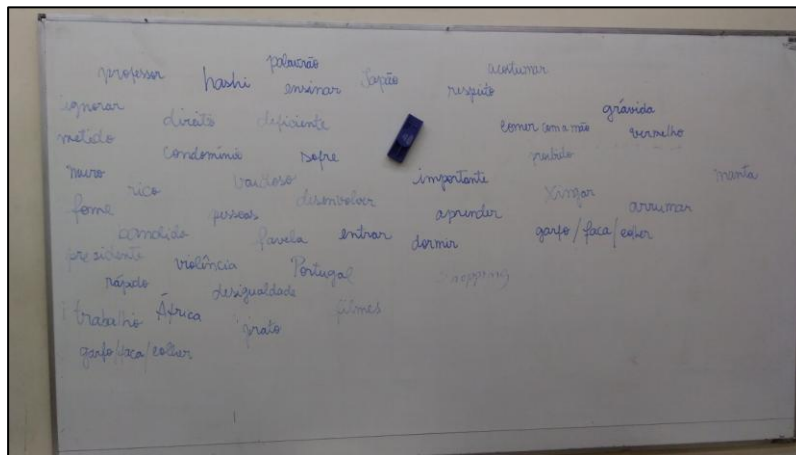 palavrão
professor hashi ensinar Japão acostumar
ignorar respeito
metido direito deficiente grávida
comer com a mão vermelho
muro condomínio sofre proibido
rico vaidoso importante xingar manta
fome pessoas desenvolver aprender arrumar
candido favela entrar dormir garfo/faca/colher
presidente violência Portugal shopping
rápido desigualdade
trabalho África prato filmes
garfo/faca/colher